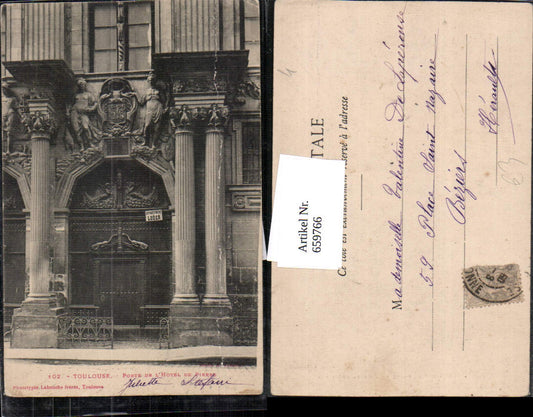 102. - TOULOUSE. - PORTE DE L'HOTEL DE PIERRE
Phototypie Labouche frères, Toulouse
Juliette
Artikel Nr.
659766
TALE
Ce côté est exclusivement réservé à l'adresse
Mademoiselle Valentine De Lapérouse
59 Place Saint Nazaire
Béziers
Hérault